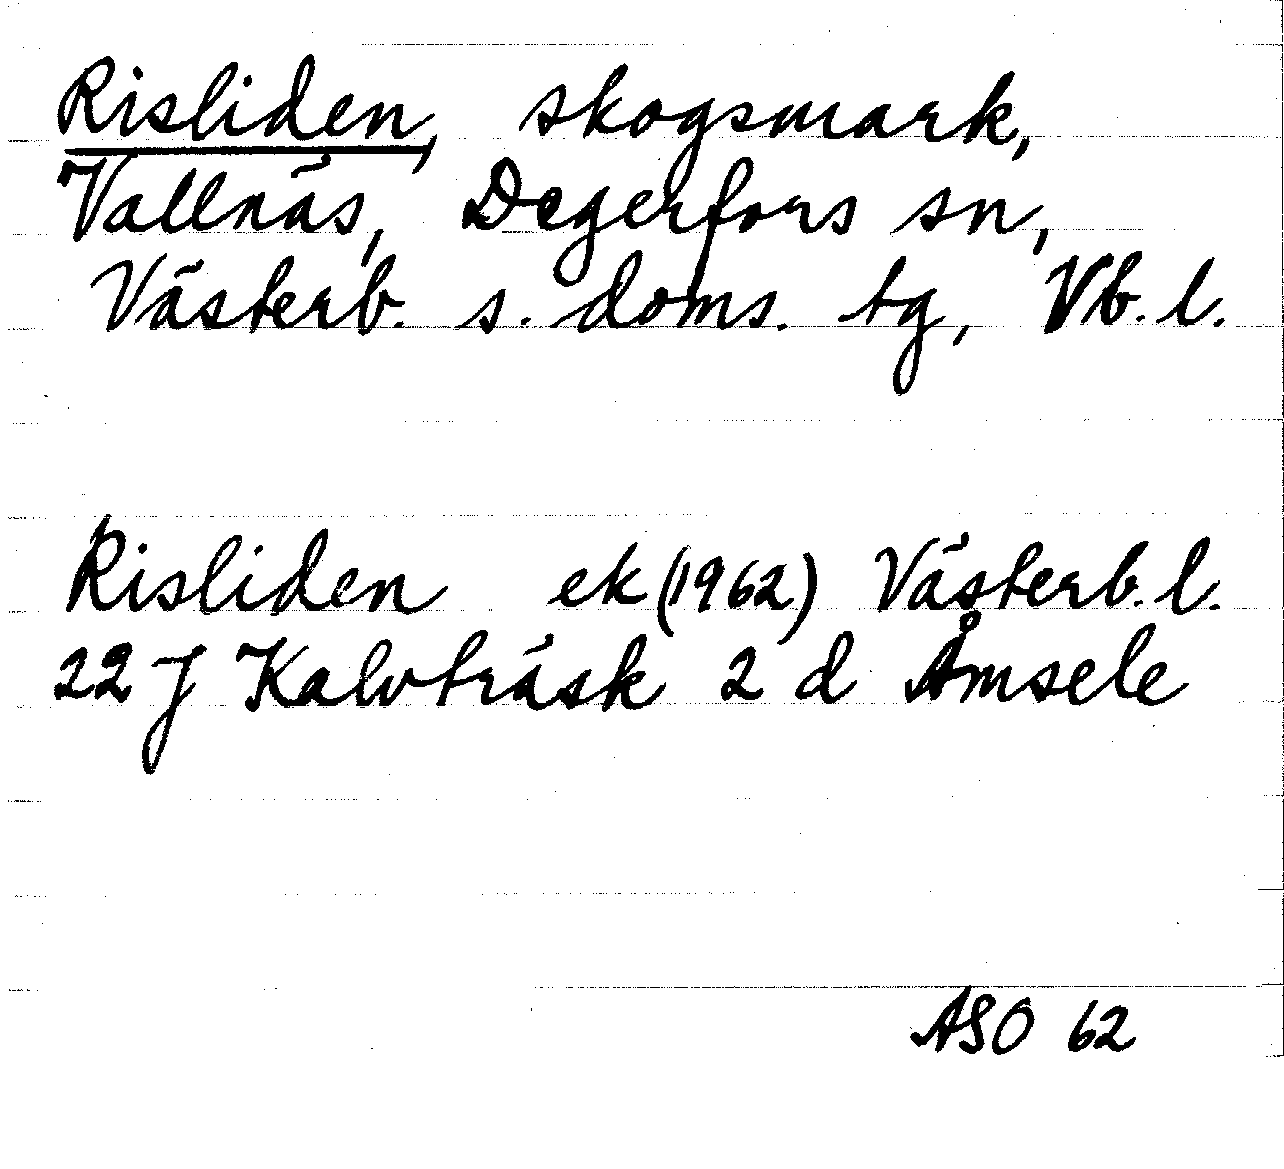 Risliden, skogsmark,
Vallnäs, Degerfors sn,
Västerb. s. doms. tg, Vb. l.
Risliden ek (1962) Västerb. l.
22 J Kalvträsk 2 d Åmsele
ASO 62